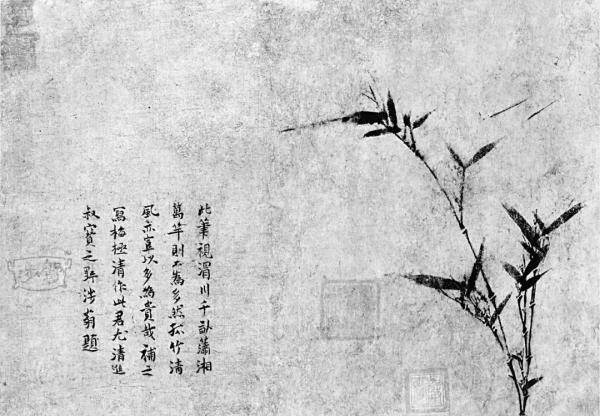 此筆視渭川千畝瀟湘
萬竿則不為多然孤竹清
風亦豈以多為貴哉補之
寫梅極清作此君尤清進
叔寶之翁題